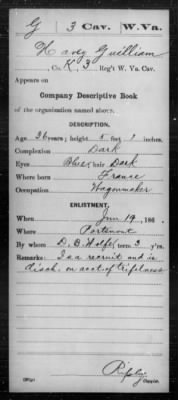 G 3 Cav. W.Va.
Harvy Gwilliam
Co. K, 3 Reg't W. Va. Cav.
Appears on
Company Descriptive Book
of the organization named above.
DESCRIPTION.
Age 26 years; height 5 feet 1 inches.
Complexion Dark
Eyes Blue; hair Dark
Where born France
Occupation Wagonmaker
ENLISTMENT.
When June 19, 186 .
Where
By whom D. B. term 3 y'rs.
Remarks: Is a recruit and is
disch. on acct of
Copyist.